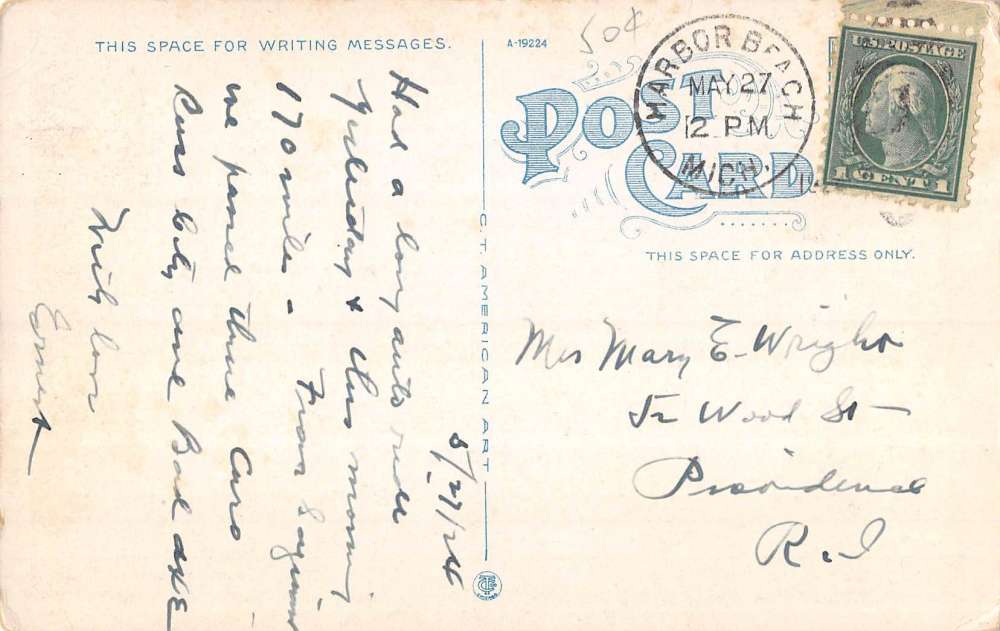 THIS SPACE FOR WRITING MESSAGES.
A-19224
50¢
POST CARD
HARBOR BEACH
MAY 27
12 PM
MICH.
U.S. POSTAGE
1 CENT 1
THIS SPACE FOR ADDRESS ONLY.
C. T. AMERICAN ART
5/27/24
Had a long auto ride
yesterday & this morning
170 miles - From Saginaw
we passed three Caro
Cass City and Bad axe
With love
Ernest
Mrs Mary E. Wright
52 Wood St
Providence
R.I